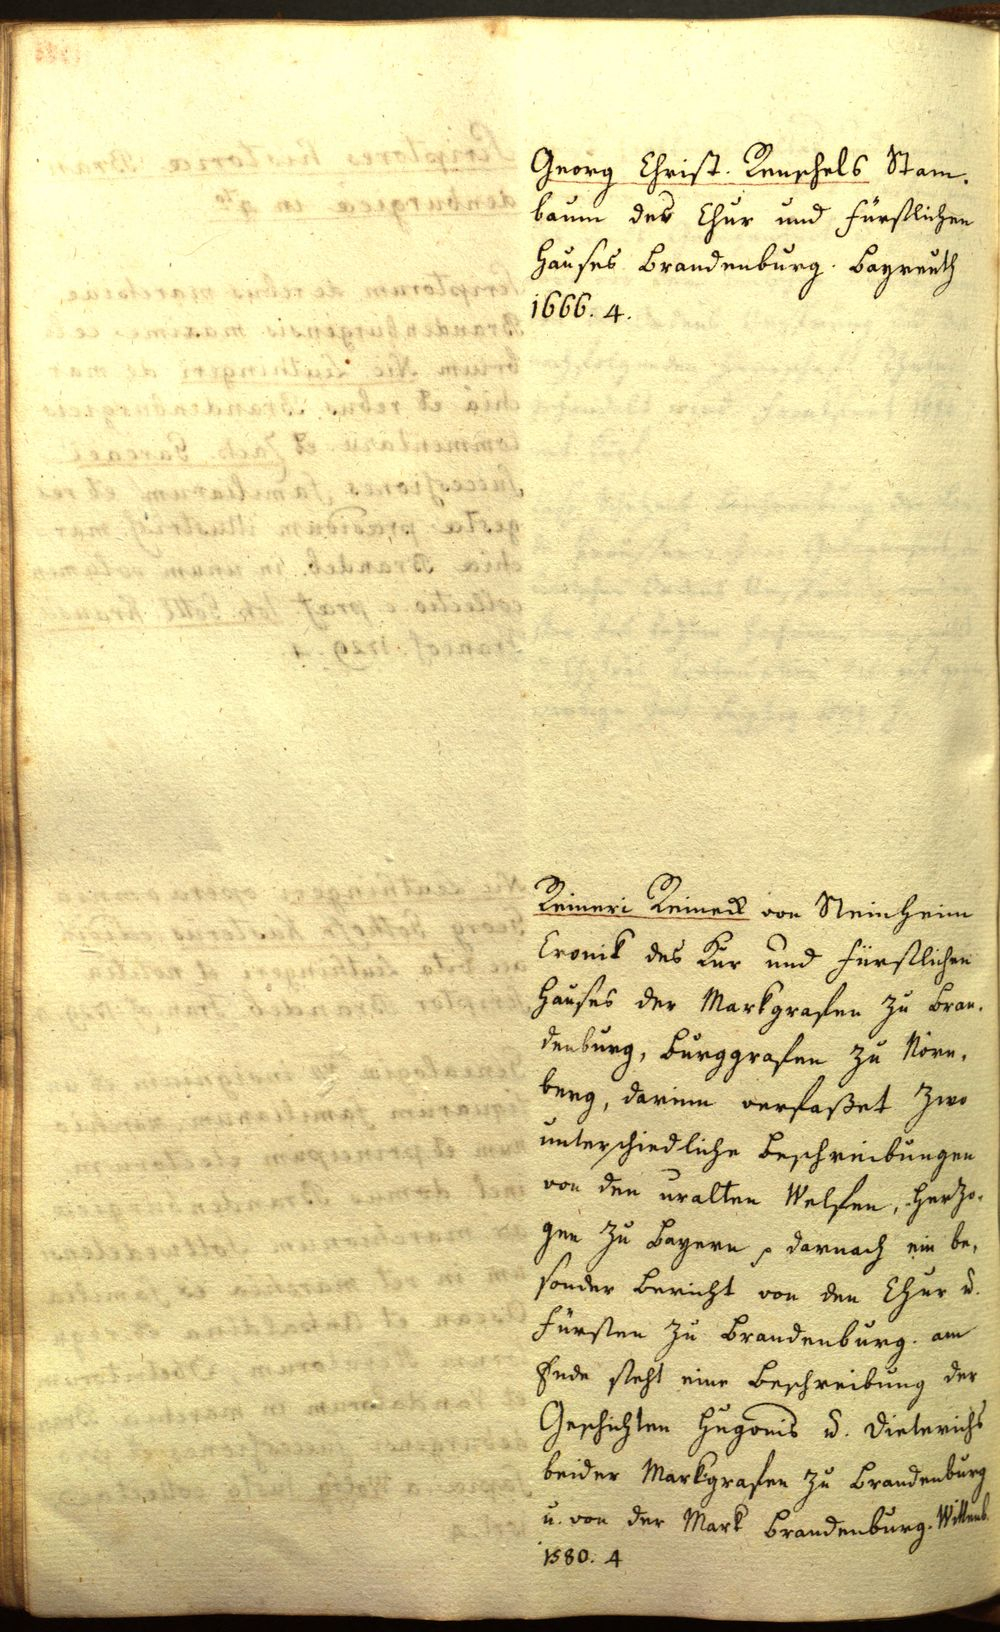 Georg Christ. Renschels Stam-
baum des Chur und Fürstlichen
Hauses Brandenburg. Bayreuth
1666. 4.
Reineri Reineck von Steinheim
Cronik des Kur und Fürstlichen
Hauses der Markgrafen zu Bran-
denburg, Burggrafen zu Nürn-
berg, darinn verfaßet zwo
unterschiedliche Beschreibungen
von den uralten Welfen, Herzo-
gen zu Bayern, darnach ein be-
sonder Bericht von den Chur u.
Fürsten zu Brandenburg. am
Ende steht eine Beschreibung der
Geschichten Hugonis u. Dieterichs
beider Markgrafen zu Brandenburg
u. von der Mark Brandenburg. Wittenb.
1580. 4